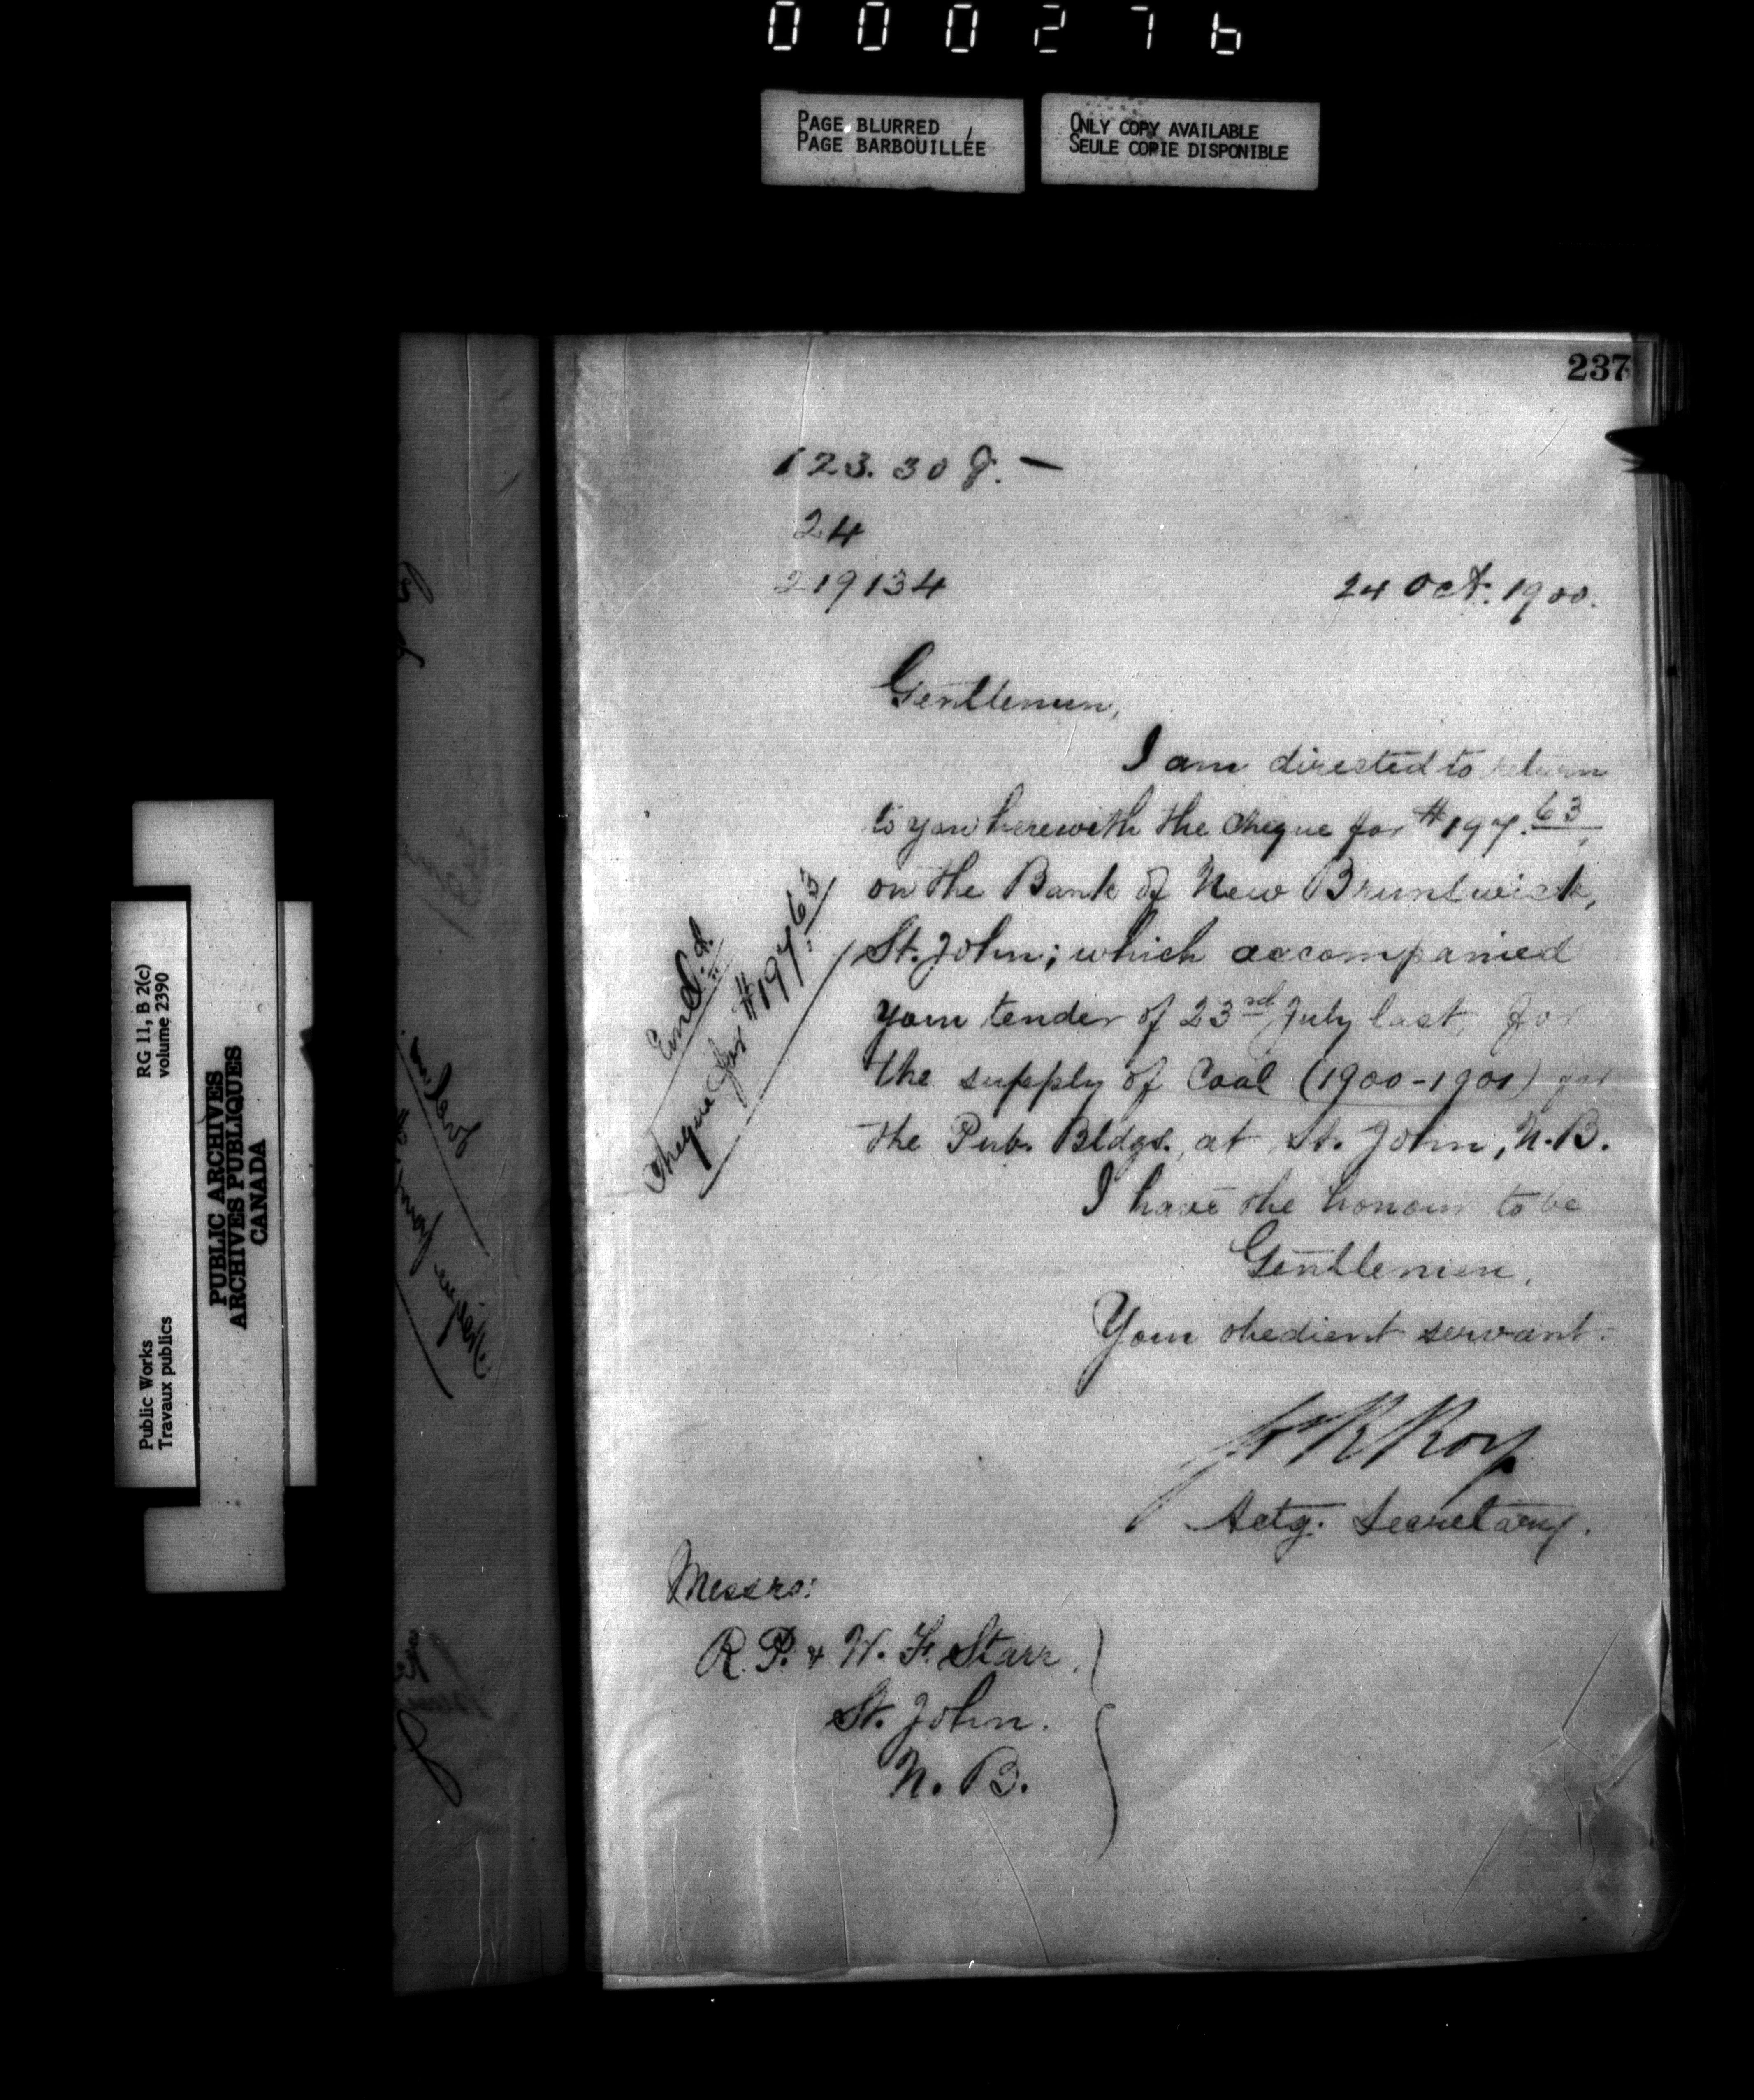 000276
PAGE BLURRED
PAGE BARBOUILLÉE
ONLY COPY AVAILABLE
SEULE COPIE DISPONIBLE
237
123.308.—
24
219134
24 Oct. 1900.
Gentlemen,
I am directed to return
to you herewith the cheque for $197.63,
on the Bank of New Brunswick,
St. John; which accompanied
your tender of 23rd July last, for
the supply of Coal (1900-1901) for
the Pub. Bldgs., at St. John, N.B.
I have the honour to be
Gentlemen,
Your obedient servant.
Roy
Actg. Secretary.
Encl.
Cheque for $197.63
Messrs:
R. P. & W. F. Starr.
St. John.
N. B.
RG 11, B 2(c)
volume 2390
Public Works
Travaux publics
PUBLIC ARCHIVES
ARCHIVES PUBLIQUES
CANADA